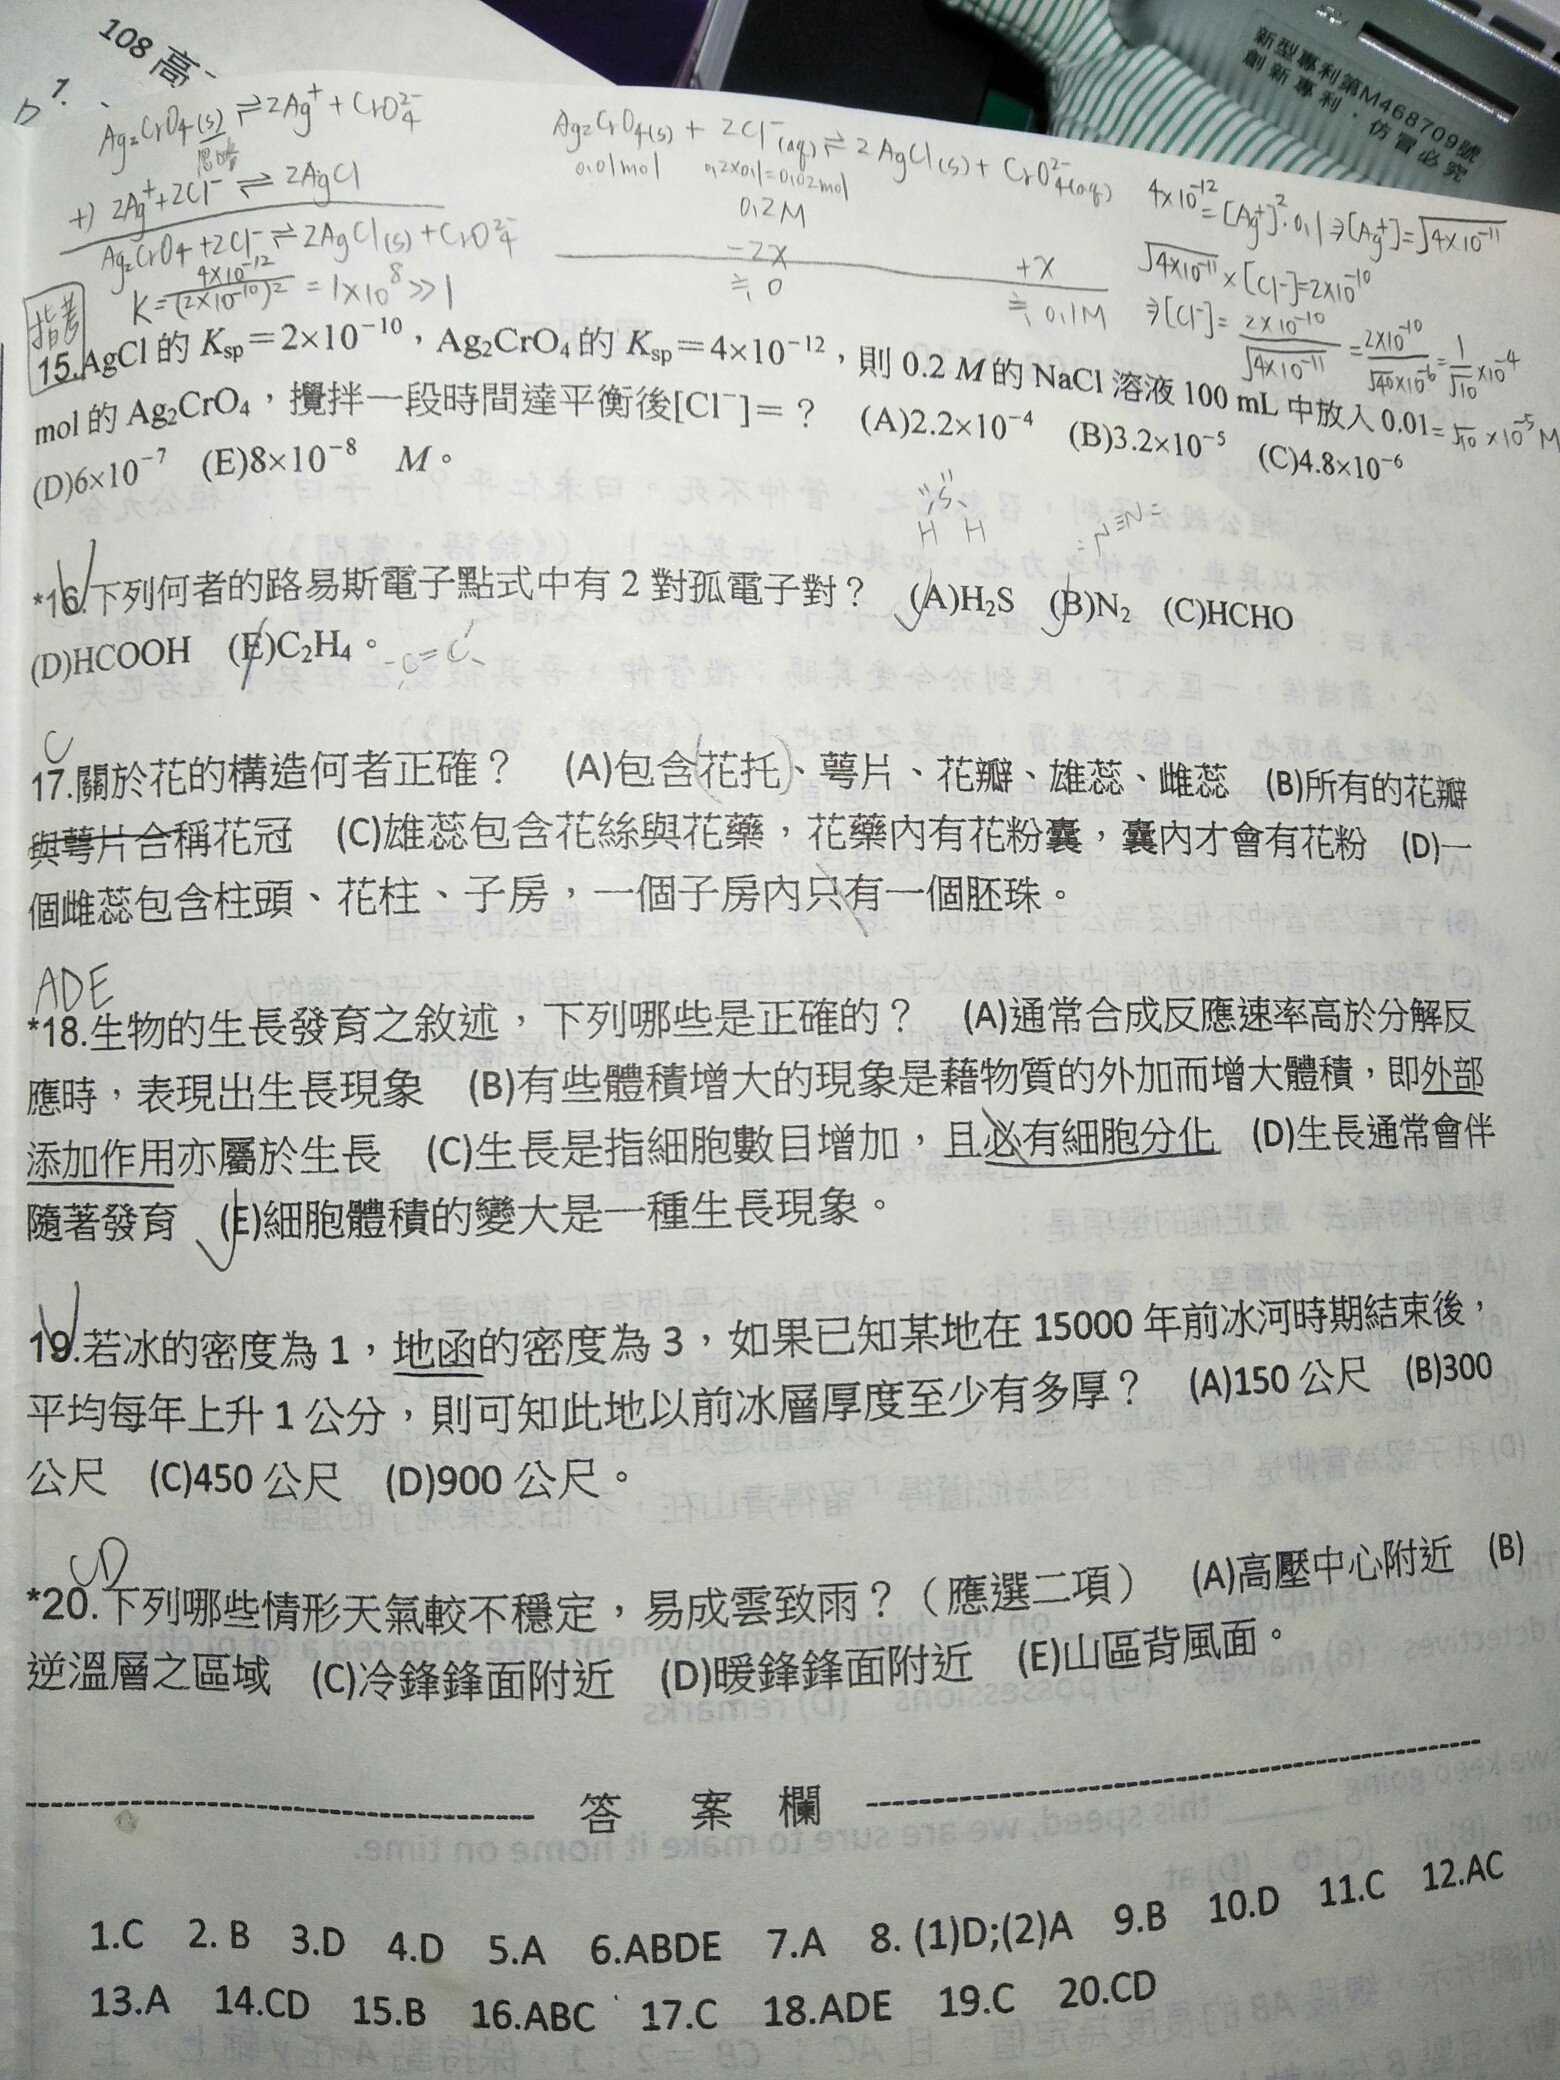 108 高
1.
D
新型專利第M468709號
創新專利．仿冒必究
Ag₂CrO₄(s) ⇌ 2Ag⁺ + CrO₄²⁻
忽略
+) 2Ag⁺+2Cl⁻ ⇌ 2AgCl
Ag₂CrO₄+2Cl⁻ ⇌ 2AgCl(s)+CrO₄²⁻
K=4×10⁻¹²/(2×10⁻¹⁰)² = 1×10⁸ ≫ 1
Ag₂CrO₄(s) + 2Cl⁻(aq) ⇌ 2AgCl(s) + CrO₄²⁻(aq)
0.01mol 0.2×0.1=0.02mol
0.2M
-2x +x
≒0 ≒0.1M
4×10⁻¹²=[Ag⁺]²·0.1⇒[Ag⁺]=√4×10⁻¹¹
√4×10⁻¹¹×[Cl⁻]=2×10⁻¹⁰
⇒[Cl⁻]=2×10⁻¹⁰/√4×10⁻¹¹=2×10⁻¹⁰/√40×10⁻⁶=1/√10×10⁻⁴
=√10×10⁻⁵M
指考
15.AgCl 的 Ksp＝2×10⁻¹⁰，Ag₂CrO₄ 的 Ksp＝4×10⁻¹²，則 0.2 M 的 NaCl 溶液 100 mL 中放入 0.01
mol 的 Ag₂CrO₄，攪拌一段時間達平衡後[Cl⁻]＝？ (A)2.2×10⁻⁴ (B)3.2×10⁻⁵ (C)4.8×10⁻⁶
(D)6×10⁻⁷ (E)8×10⁻⁸ M。
S
H H
:N≡N:
*16.下列何者的路易斯電子點式中有 2 對孤電子對？ (A)H₂S (B)N₂ (C)HCHO
(D)HCOOH (E)C₂H₄。
C=C
C
17.關於花的構造何者正確？ (A)包含花托、萼片、花瓣、雄蕊、雌蕊 (B)所有的花瓣
與萼片合稱花冠 (C)雄蕊包含花絲與花藥，花藥內有花粉囊，囊內才會有花粉 (D)一
個雌蕊包含柱頭、花柱、子房，一個子房內只有一個胚珠。
ADE
*18.生物的生長發育之敘述，下列哪些是正確的？ (A)通常合成反應速率高於分解反
應時，表現出生長現象 (B)有些體積增大的現象是藉物質的外加而增大體積，即外部
添加作用亦屬於生長 (C)生長是指細胞數目增加，且必有細胞分化 (D)生長通常會伴
隨著發育 (E)細胞體積的變大是一種生長現象。
19.若冰的密度為 1，地函的密度為 3，如果已知某地在 15000 年前冰河時期結束後，
平均每年上升 1 公分，則可知此地以前冰層厚度至少有多厚？ (A)150 公尺 (B)300
公尺 (C)450 公尺 (D)900 公尺。
CD
*20.下列哪些情形天氣較不穩定，易成雲致雨？（應選二項） (A)高壓中心附近 (B)
逆溫層之區域 (C)冷鋒鋒面附近 (D)暖鋒鋒面附近 (E)山區背風面。
答 案 欄
1.C 2. B 3.D 4.D 5.A 6.ABDE 7.A 8. (1)D;(2)A 9.B 10.D 11.C 12.AC
13.A 14.CD 15.B 16.ABC 17.C 18.ADE 19.C 20.CD